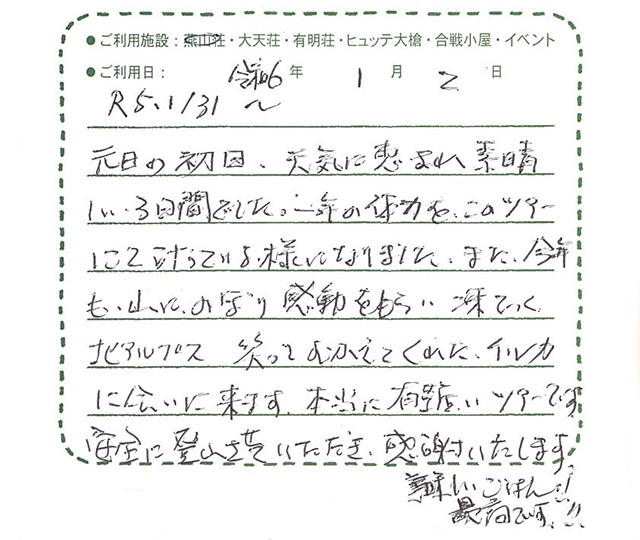 ●ご利用施設：燕山荘・大天荘・有明荘・ヒュッテ大槍・合戦小屋・イベント
●ご利用日：令和6年 1月 2日
R5.1/31〜
元日の初日、天気に恵まれ素晴
しい3日間でした。一年の体力を、このツアー
にて計っている様になりました。また、今年
も、山に、のぼり感動をもらい凍てつく
北アルプス 笑ってむかえてくれた、イルカ
に会いに来ます。本当に有難いツアーです
安全に登山させていただき、感謝いたします。
美味しいごはん!!
最高です。!!